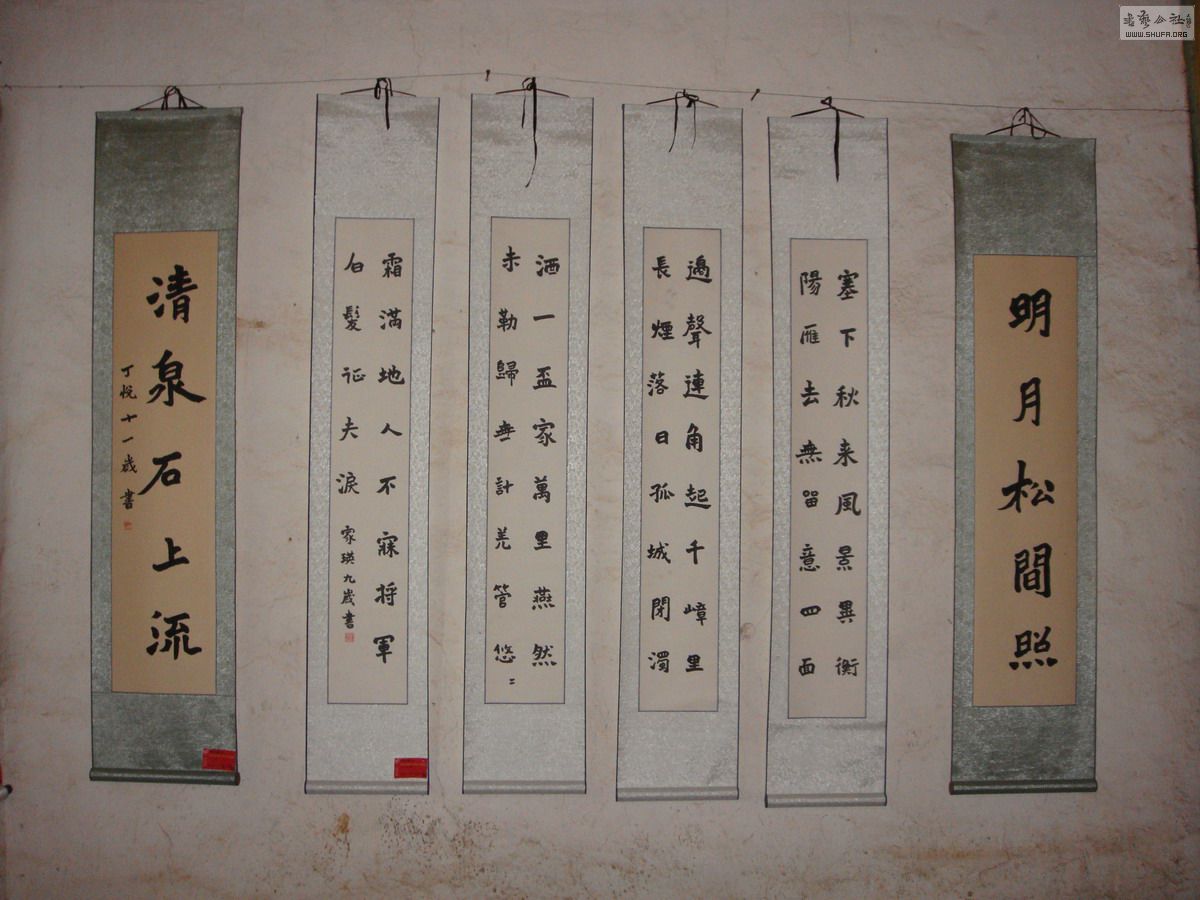 明月松間照
塞下秋来風景異衡
陽雁去無留意四面
邊聲連角起千嶂里
長煙落日孤城閉濁
酒一盃家萬里燕然
未勒歸無計羌管悠〻
霜滿地人不寐将軍
白髮征夫淚
家瑛九歲書
清泉石上流
丁悦十一歲書
WWW.SHUFA.ORG